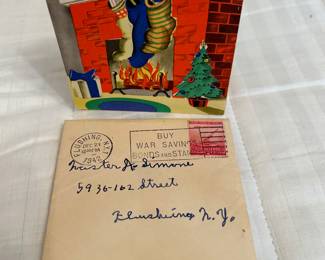 FLUSHING, N.Y.
DEC 21
1942
BUY
WAR SAVINGS
BONDS AND STAMPS
Master A. Simone
5936-162 Street
Flushing N.Y.